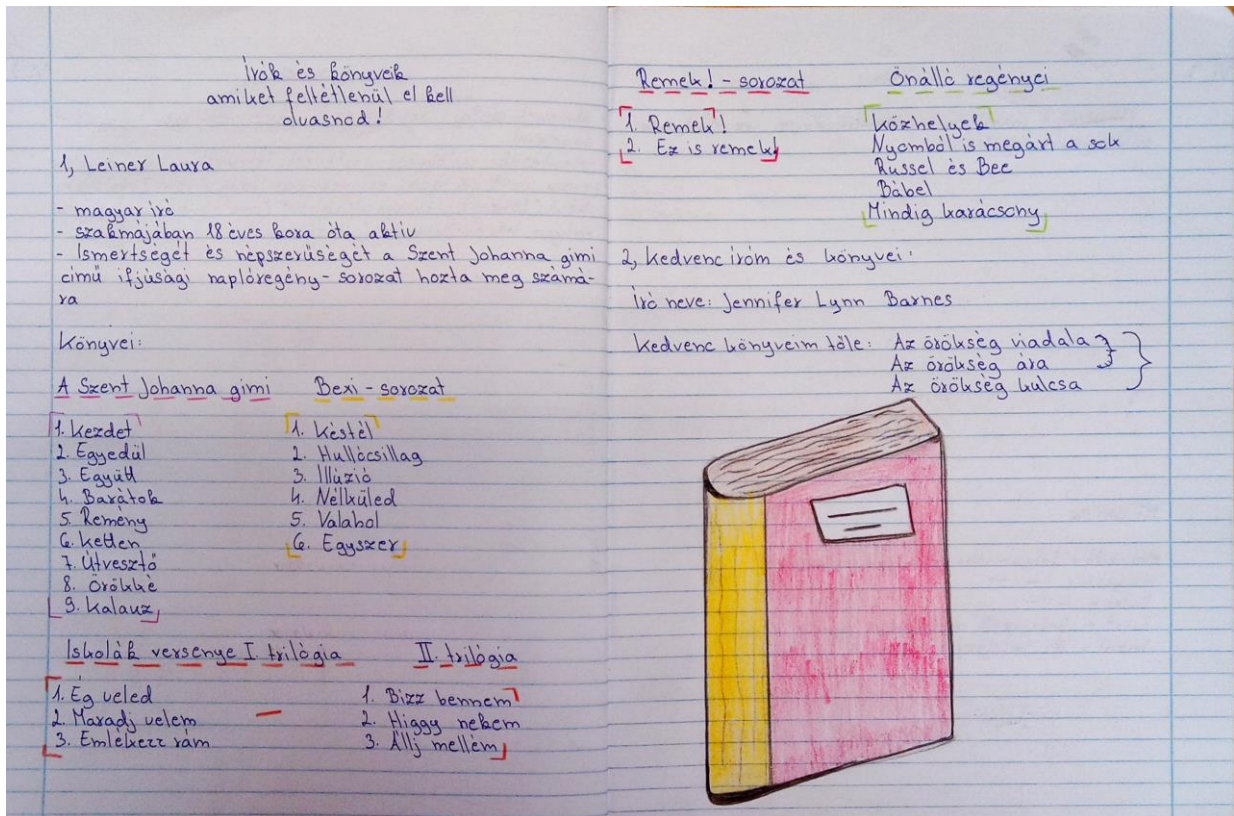 Írók és könyveik
amiket feltétlenül el kell
olvasnod!
1, Leiner Laura
- magyar író
- szakmájában 18 éves kora óta aktív
- Ismertségét és népszerűségét a Szent Johanna gimi
című ifjúsági naplóregény-sorozat hozta meg számá-
ra
Könyvei:
A Szent Johanna gimi
1. Kezdet
2. Egyedül
3. Együtt
4. Barátok
5. Remény
6. Ketten
7. Útvesztő
8. Örökké
9. Kalauz
Bexi - sorozat
1. Késtél
2. Hullócsillag
3. Illúzió
4. Nélküled
5. Valahol
6. Egyszer
Iskolák versenye I. trilógia
1. Ég veled
2. Maradj velem
3. Emlékezz rám
II. trilógia
1. Bízz bennem
2. Higgy nekem
3. Állj mellém
Remek! - sorozat
1. Remek!
2. Ez is remek!
Önálló regényei
Közhelyek
Nyomból is megárt a sok
Russel és Bee
Bábel
Mindig karácsony
2, Kedvenc íróm és könyvei:
Író neve: Jennifer Lynn Barnes
Kedvenc könyveim tőle: Az örökség viadala
Az örökség ára
Az örökség kulcsa